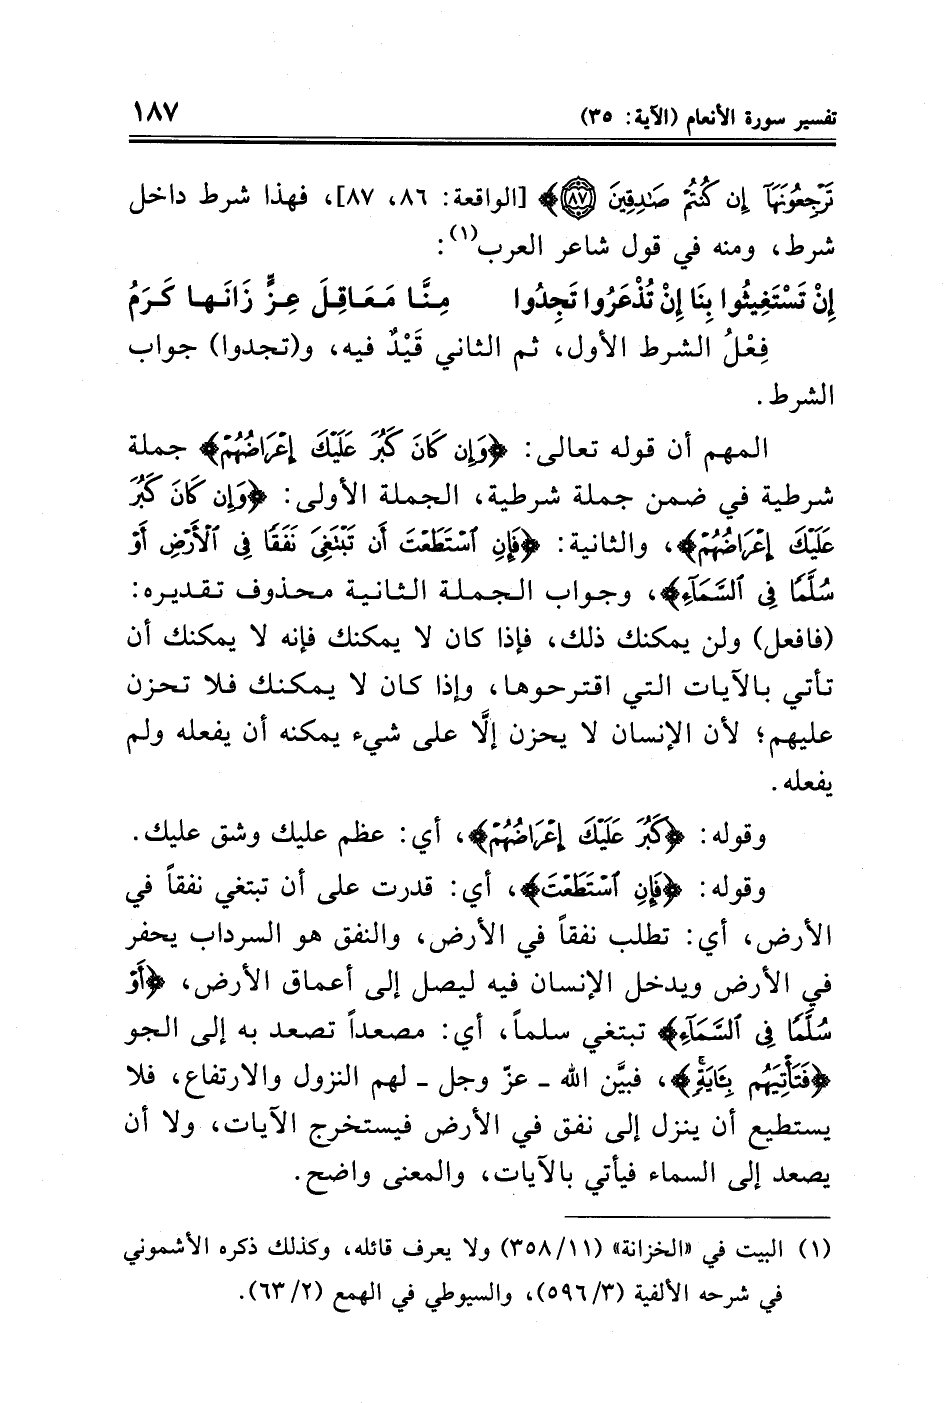 تفسير سورة الأنعام (الآية: ٣٥) ١٨٧
تَرْجِعُونَهَآ إِن كُنتُمْ صَـٰدِقِينَ ٨٧﴾ [الواقعة: ٨٦، ٨٧]، فهذا شرط داخل
شرط، ومنه في قول شاعر العرب(١):
إِنْ تَسْتَغِيثُوا بِنَا إِنْ تُذْعَرُوا تَجِدُوا مِنَّا مَعَاقِلَ عِزٍّ زَانَهـا كَرَمُ
فِعْلُ الشرط الأول، ثم الثاني قَيْدٌ فيه، و(تجدوا) جواب
الشرط.
المهم أن قوله تعالى: ﴿وَإِن كَانَ كَبُرَ عَلَيْكَ إِعْرَاضُهُمْ﴾ جملة
شرطية في ضمن جملة شرطية، الجملة الأولى: ﴿وَإِن كَانَ كَبُرَ
عَلَيْكَ إِعْرَاضُهُمْ﴾، والثانية: ﴿فَإِنِ ٱسْتَطَعْتَ أَن تَبْتَغِىَ نَفَقًا فِى ٱلْأَرْضِ أَوْ
سُلَّمًا فِى ٱلسَّمَآءِ﴾، وجواب الجملة الثانية محذوف تقديره:
(فافعل) ولن يمكنك ذلك، فإذا كان لا يمكنك فإنه لا يمكنك أن
تأتي بالآيات التي اقترحوها، وإذا كان لا يمكنك فلا تحزن
عليهم؛ لأن الإنسان لا يحزن إلَّا على شيء يمكنه أن يفعله ولم
يفعله.
وقوله: ﴿كَبُرَ عَلَيْكَ إِعْرَاضُهُمْ﴾، أي: عظم عليك وشق عليك.
وقوله: ﴿فَإِنِ ٱسْتَطَعْتَ﴾، أي: قدرت على أن تبتغي نفقاً في
الأرض، أي: تطلب نفقاً في الأرض، والنفق هو السرداب يحفر
في الأرض ويدخل الإنسان فيه ليصل إلى أعماق الأرض، ﴿أَوْ
سُلَّمًا فِى ٱلسَّمَآءِ﴾ تبتغي سلماً، أي: مصعداً تصعد به إلى الجو
﴿فَتَأْتِيَهُم بِـَٔايَةٍۚ﴾، فبيَّن الله ـ عزّ وجل ـ لهم النزول والارتفاع، فلا
يستطيع أن ينزل إلى نفق في الأرض فيستخرج الآيات، ولا أن
يصعد إلى السماء فيأتي بالآيات، والمعنى واضح.
(١) البيت في «الخزانة» (١١/ ٣٥٨) ولا يعرف قائله، وكذلك ذكره الأشموني
في شرحه الألفية (٣/ ٥٩٦)، والسيوطي في الهمع (٢/ ٦٣).